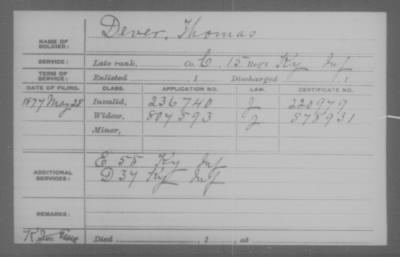 NAME OF SOLDIER: Dever, Thomas
SERVICE: Late rank, Co. C, 15 Reg't Ky Inf
TERM OF SERVICE: Enlisted , 1 Discharged , 1
DATE OF FILING. CLASS. APPLICATION NO. LAW. CERTIFICATE NO.
1877 May 28 Invalid, 236740 J 220979
Widow, 807593 J 578931
Minor,
ADDITIONAL SERVICES: E 55 Ky Inf
D 37 Ky Inf
REMARKS:
Died , 1 , at